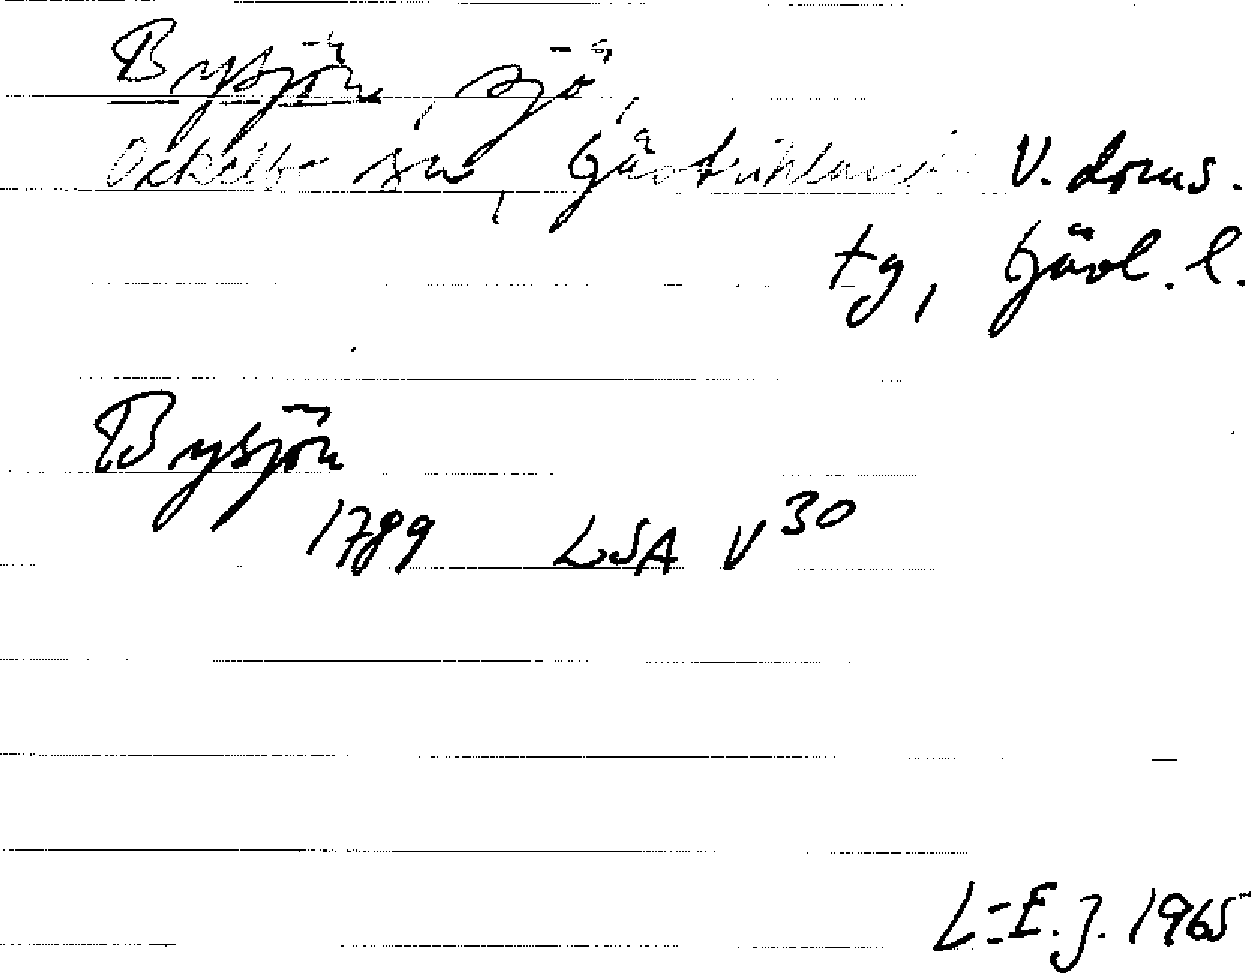 Bysjön, sjö,
Ockelbo sn, Gästriklands V. doms.
tg, Gävl. l.
Bysjön
1789 LSA V30
L-E.J. 1965